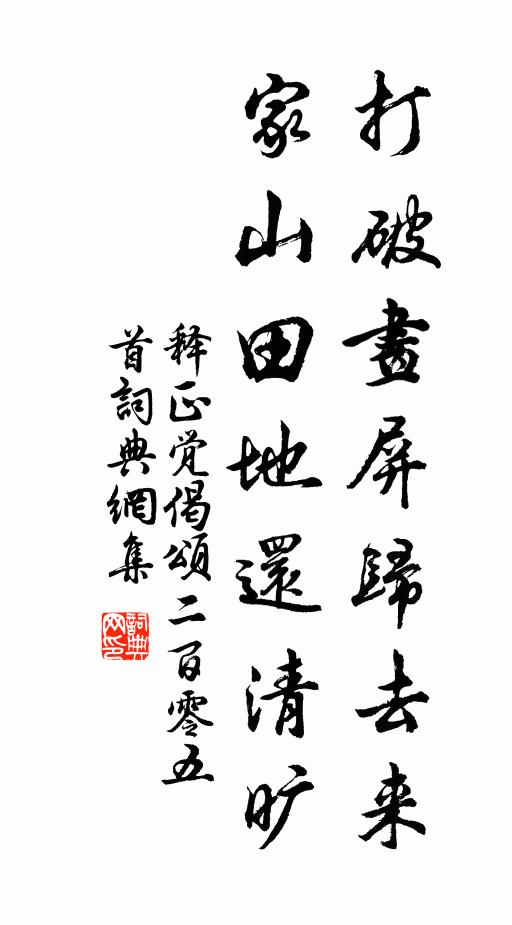 打破畫屏歸去来
家山田地還清旷
释正觉偈頌二百零五
首詞典網集
詞典网印